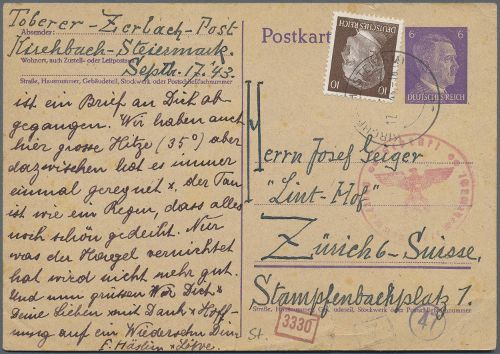 Toberer - Zerlach - Post
Absender:
Kirchbach - Steiermark.
Wohnort, auch Zustell- oder Leitpostamt
Septb. 17. 43.
Straße, Hausnummer, Gebäudeteil, Stockwerk oder Postschließfachnummer
ist ein Brief an Dich ab-
gegangen. Wir haben auch
hier grosse Hitze (35°) aber
dazwischen hat es immer
einmal geregnet u. der Tau
ist wie ein Regen, dass alles
noch schön gedeiht. Nur
was der Hagel vernichtet
hat wird nicht mehr gut.
Und nun grüssen Wir Dich u
Deine Lieben mit Dank u Hoff-
nung auf ein Wiedersehn Dein
Postkarte
DEUTSCHES REICH
10 10
6 6
DEUTSCHES REICH
Herrn Josef Geiger
"Lint-Hof"
Zürich 6 - Suisse.
Stampfenbachplatz 1.
Straße, Hausnummer, Gebäudeteil, Stockwerk oder Postschließfachnummer
St.
3330
47